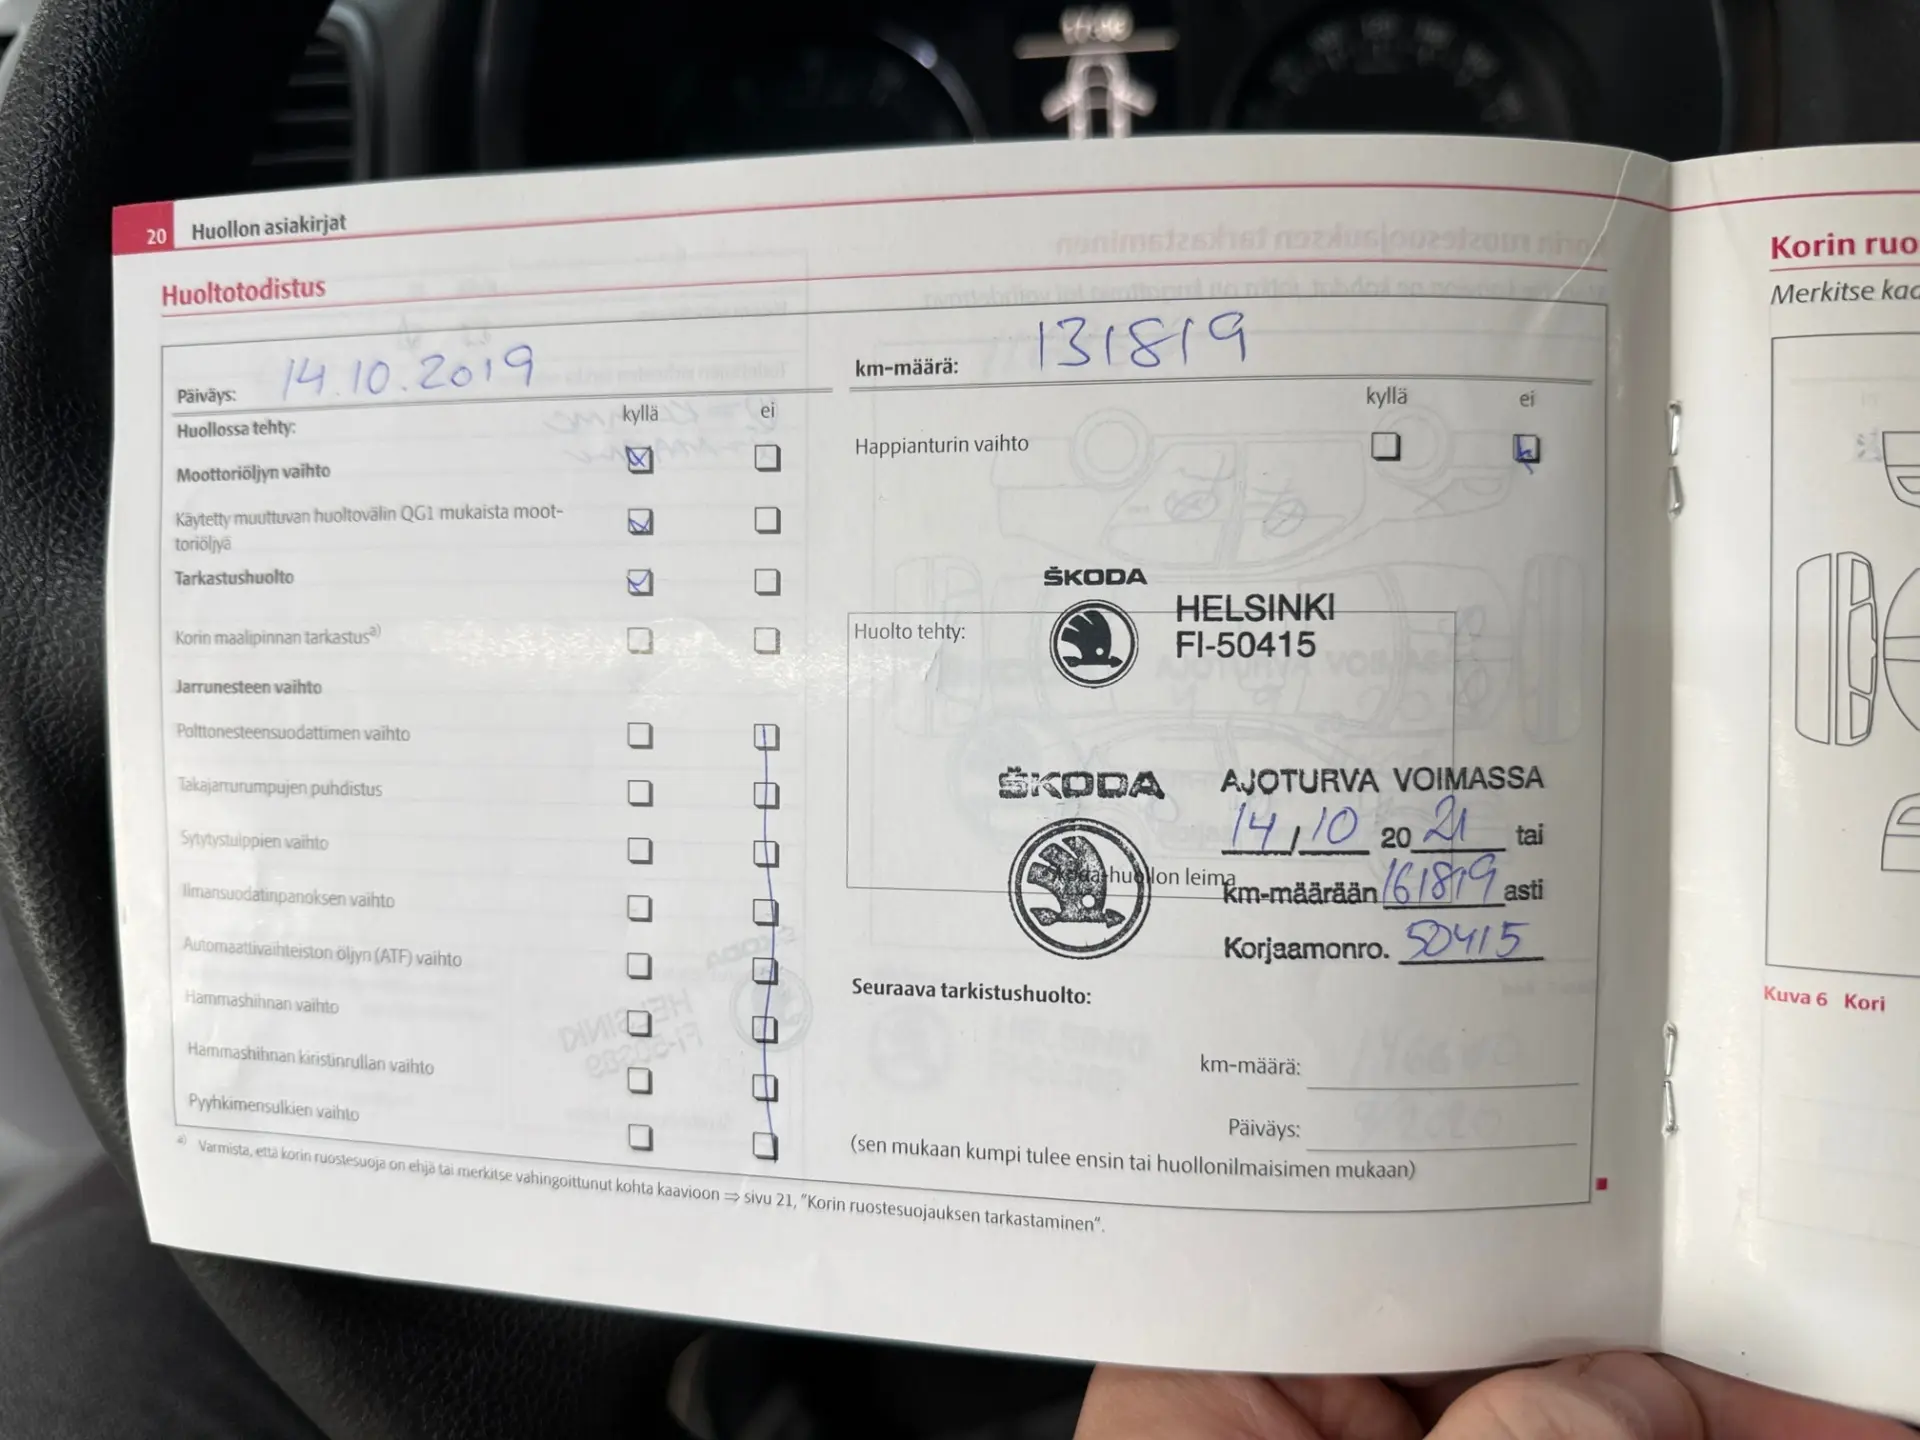 20 Huollon asiakirjat
Huoltotodistus
Päiväys: 14.10.2019
kyllä ei
Huollossa tehty:
Moottoriöljyn vaihto
Käytetty muuttuvan huoltovälin QG1 mukaista moot-
toriöljyä
Tarkastushuolto
Korin maalipinnan tarkastus a)
Jarrunesteen vaihto
Polttonesteensuodattimen vaihto
Takajarrurumpujen puhdistus
Sytytystulppien vaihto
Ilmansuodatinpanoksen vaihto
Automaattivaihteiston öljyn (ATF) vaihto
Hammashihnan vaihto
Hammashihnan kiristinrullan vaihto
Pyyhkimensulkien vaihto
km-määrä: 131819
kyllä ei
Happianturin vaihto
ŠKODA
HELSINKI
FI-50415
Huolto tehty:
ŠKODA
AJOTURVA VOIMASSA
14 / 10 20 21 tai
-huollon leima
km-määrään 161819 asti
Korjaamonro. 50415
Seuraava tarkistushuolto:
km-määrä:
Päiväys:
(sen mukaan kumpi tulee ensin tai huollonilmaisimen mukaan)
a) Varmista, että korin ruostesuoja on ehjä tai merkitse vahingoittunut kohta kaavioon ⇒ sivu 21, "Korin ruostesuojauksen tarkastaminen".
Korin ruo
Merkitse kaa
Kuva 6 Kori